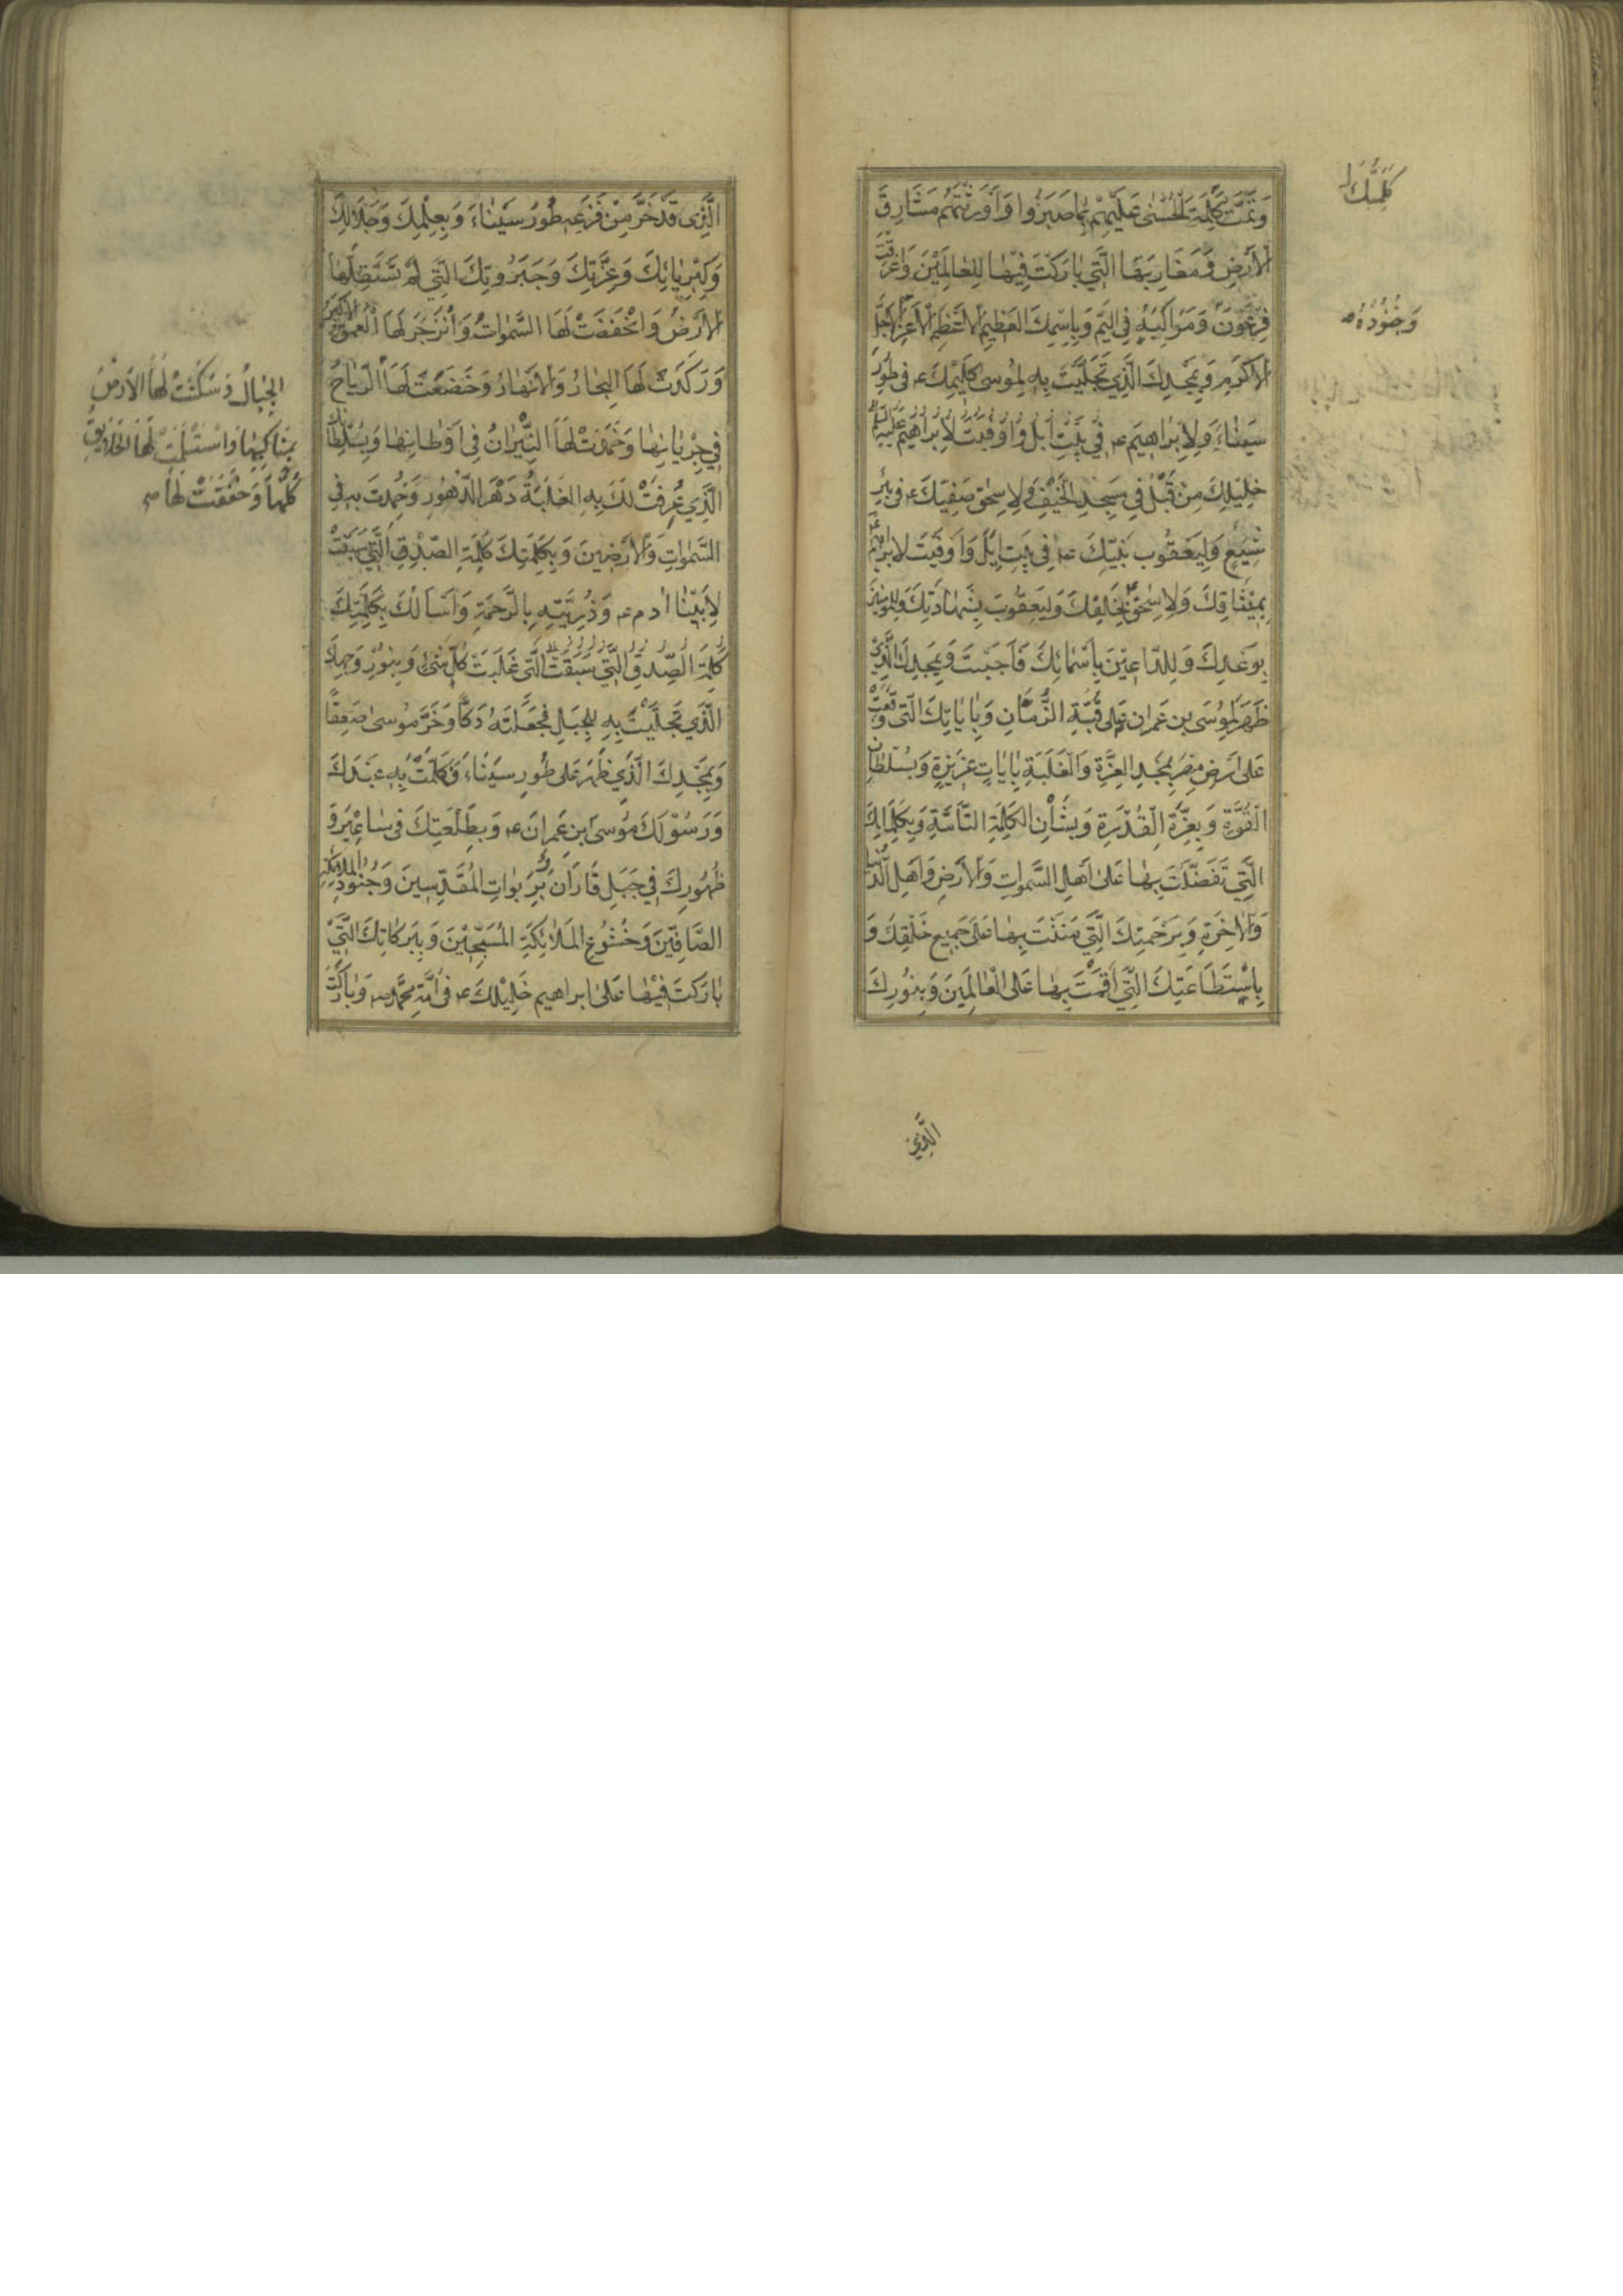 وَتَمَّتْ كَلِمَةُ الْحُسْنٰى عَلَيْهِمْ بِمَا صَبَرُوا وَاَوْرَثْتَهُمْ مَشَارِقَ
الْاَرْضِ وَمَغَارِبَهَا الَّتِي بَارَكْتَ فِيهَا لِلْعَالَمِيْنَ وَاَغْرَقْتَ
فِرْعَوْنَ وَمَرَاكِبَهُ فِي الْيَمِّ وَبِاسْمِكَ الْعَظِيْمِ الْاَعْظَمِ الْاَعَزِّ الْاَجَلِّ
الْاَكْرَمِ وَبِمَجْدِكَ الَّذِي تَجَلَّيْتَ بِهِ لِمُوسٰى كَلِيْمِكَ ع فِي طُورِ
سَيْنَاءَ وَلِاِبْرَاهِيْمَ ع
خَلِيْلِكَ مِنْ قَبْلُ فِي مَسْجِدِ الْخَيْفِ وَلِاِسْحٰقَ صَفِيِّكَ ع فِي بِئْرِ
شِيَعٍ وَلِيَعْقُوبَ نَبِيِّكَ ع فِي بَيْتِ اِيْلَ وَاَوْفَيْتَ لِاِبْرَاهِيْمَ
بِمِيْثَاقِكَ وَلِاِسْحٰقَ بِحَلِفِكَ وَلِيَعْقُوبَ بِشَهَادَتِكَ وَلِلْمُؤْمِنِيْنَ
بِوَعْدِكَ وَلِلدَّاعِيْنَ بِاَسْمَائِكَ فَاَجَبْتَ وَبِمَجْدِكَ الَّذِي
ظَهَرَ لِمُوسَى بْنِ عِمْرَانَ عَلٰى قُبَّةِ الزَّمَانِ وَبِاٰيَاتِكَ الَّتِي وَقَعَتْ
عَلٰى اَرْضِ مِصْرَ بِمَجْدِ الْعِزَّةِ وَالْغَلَبَةِ بِاٰيَاتٍ عَزِيْزَةٍ وَبِسُلْطَانِ
الْقُوَّةِ وَبِعِزَّةِ الْقُدْرَةِ وَبِشَأْنِ الْكَلِمَةِ التَّامَّةِ وَبِكَلِمَاتِكَ
الَّتِي تَفَضَّلْتَ بِهَا عَلٰى اَهْلِ السَّمٰوَاتِ وَالْاَرْضِ وَاَهْلِ الدُّنْيَا
وَالْاٰخِرَةِ وَبِرَحْمَتِكَ الَّتِي مَنَنْتَ بِهَا عَلٰى جَمِيْعِ خَلْقِكَ وَ
بِاسْتِطَاعَتِكَ الَّتِي اَقَمْتَ بِهَا عَلَى الْعَالَمِيْنَ وَبِنُورِكَ
الَّذِي
وَجُنُوْدَهُ
الَّذِى قَدْ خَرَّ مِنْ فَزَعِهِ طُوْرُ سَيْنَاءَ وَبِعِلْمِكَ وَجَلَالِكَ
وَكِبْرِيَائِكَ وَعِزَّتِكَ وَجَبَرُوتِكَ الَّتِي لَمْ تَسْتَقِلَّهَا
الْاَرْضُ وَانْخَفَضَتْ لَهَا السَّمٰوَاتُ وَانْزَجَرَ لَهَا الْعُمْقُ الْاَكْبَرُ
وَرَكَدَتْ لَهَا الْبِحَارُ وَالْاَنْهَارُ وَخَضَعَتْ لَهَا
الرِّيَاحُ فِي جِرْيَانِهَا وَخَمَدَتْ لَهَا النِّيْرَانُ فِي اَوْطَانِهَا وَبِسُلْطَانِكَ
الَّذِي عُرِفَتْ لَكَ بِهِ الْغَلَبَةُ دَهْرَ الدُّهُوْرِ وَحُمِدْتَ بِهِ فِي
السَّمٰوَاتِ وَالْاَرَضِيْنَ وَبِكَلِمَتِكَ كَلِمَةِ الصِّدْقِ الَّتِي سَبَقَتْ
لِاَبِيْنَا اٰدَمَ ع وَذُرِّيَّتِهِ بِالرَّحْمَةِ وَاَسْأَلُكَ بِكَلِمَتِكَ
كَلِمَةِ الصِّدْقِ الَّتِي سَبَقَتْ الَّتِي غَلَبَتْ كُلَّ شَيْءٍ وَبِنُوْرِ وَجْهِكَ
الَّذِي تَجَلَّيْتَ بِهِ لِلْجَبَلِ فَجَعَلْتَهُ دَكًّا وَخَرَّ مُوسٰى صَعِقًا
وَبِمَجْدِكَ الَّذِي ظَهَرَ عَلٰى طُورِ سَيْنَاءَ فَكَلَّمْتَ بِهِ عَبْدَكَ
وَرَسُوْلَكَ مُوسَى ابْنَ عِمْرَانَ ع وَبِطَلْعَتِكَ فِي سَاعِيْرَ وَ
ظُهُورِكَ فِي جَبَلِ فَارَانَ بِرَبَوَاتِ الْمُقَدَّسِيْنَ وَجُنُوْدِ الْمَلَائِكَةِ
الصَّافِّيْنَ وَخُشُوْعِ الْمَلَائِكَةِ الْمُسَبِّحِيْنَ وَبِبَرَكَاتِكَ الَّتِي
بَارَكْتَ فِيْهَا عَلٰى اِبْرَاهِيْمَ خَلِيْلِكَ ع فِي اُمَّةِ مُحَمَّدٍ ص وَبَارَكْتَ
الْجِبَالُ وَسَكَنَتْ لَهَا الْاَرْضُ
بِمَنَاكِبِهَا وَاسْتَسْلَمَتْ لَهَا الْخَلَائِقُ
كُلُّهَا وَخَفَقَتْ لَهَا